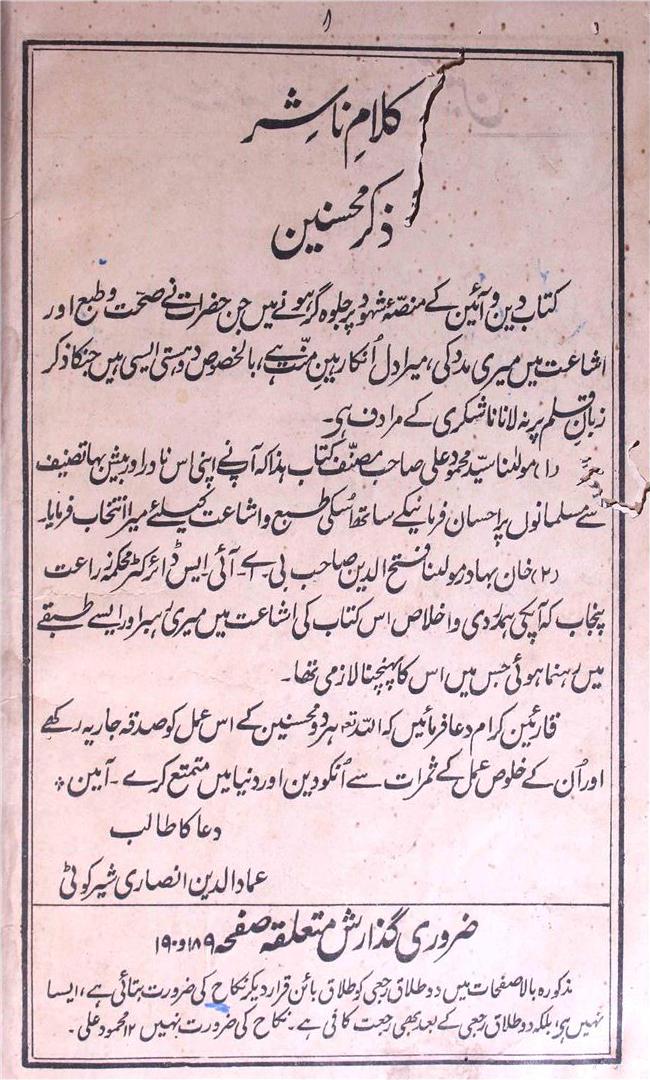 ۱
کلامِ ناشِر
ذکر محسنین
کتاب دین و آئین کے منصۂ شہود پر جلوہ گر ہونے میں جن حضرات نے صحّت و طبع اور
اشاعت میں میری مدد کی، میرا دل اُنکا رہینِ منّت ہے، بالخصوص دو ہستی ایسی ہیں جنکا ذکر
زبانِ قلم پر نہ لانا ناشکری کے مرادف ہی۔
(۱) مولٰنا سیّد محمود علی صاحب مصنّفِ کتاب ہذا کہ آپنے اپنی اس نادر اور بیش بہا تصنیف
سے مسلمانوں پر احسان فرمانیکے ساتھ اُسکی طبع و اشاعت کیلئے میرا انتخاب فرمایا۔
(۲) خان بہادر مولٰنا فتح الدین صاحب بی۔اے۔آئی۔ایس ڈائرکٹر محکمہ زراعت
پنجاب کہ آپکی ہمدردی و اخلاص اس کتاب کی اشاعت میں میری رہبر اور ایسے طبقے
میں رہنما ہوئی جس میں اس کا پہنچنا لازمی تھا۔
قارئین کرام دعا فرمائیں کہ اللہ تعہ ہر دو محسنین کے اس عمل کو صدقہ جاریہ رکھے
اور اُن کے خلوص عمل کے ثمرات سے اُنکو دین اور دنیا میں متمتع کرے۔ آمین *
دعا کا طالب
عماد الدین انصاری شیرکوٹی
ضروری گذارش متعلقہ صفحہ ۱۸۹ و ۱۹۰
مذکورہ بالا صفحات میں دو طلاق رجعی کو طلاق بائن قرار دیکر نکاح کی ضرورت بتائی ہے، ایسا
نہیں ہی، بلکہ دو طلاق رجعی کے بعد بھی رجعت کافی ہے۔ نکاح کی ضرورت نہیں ۱۲ محمود علی۔